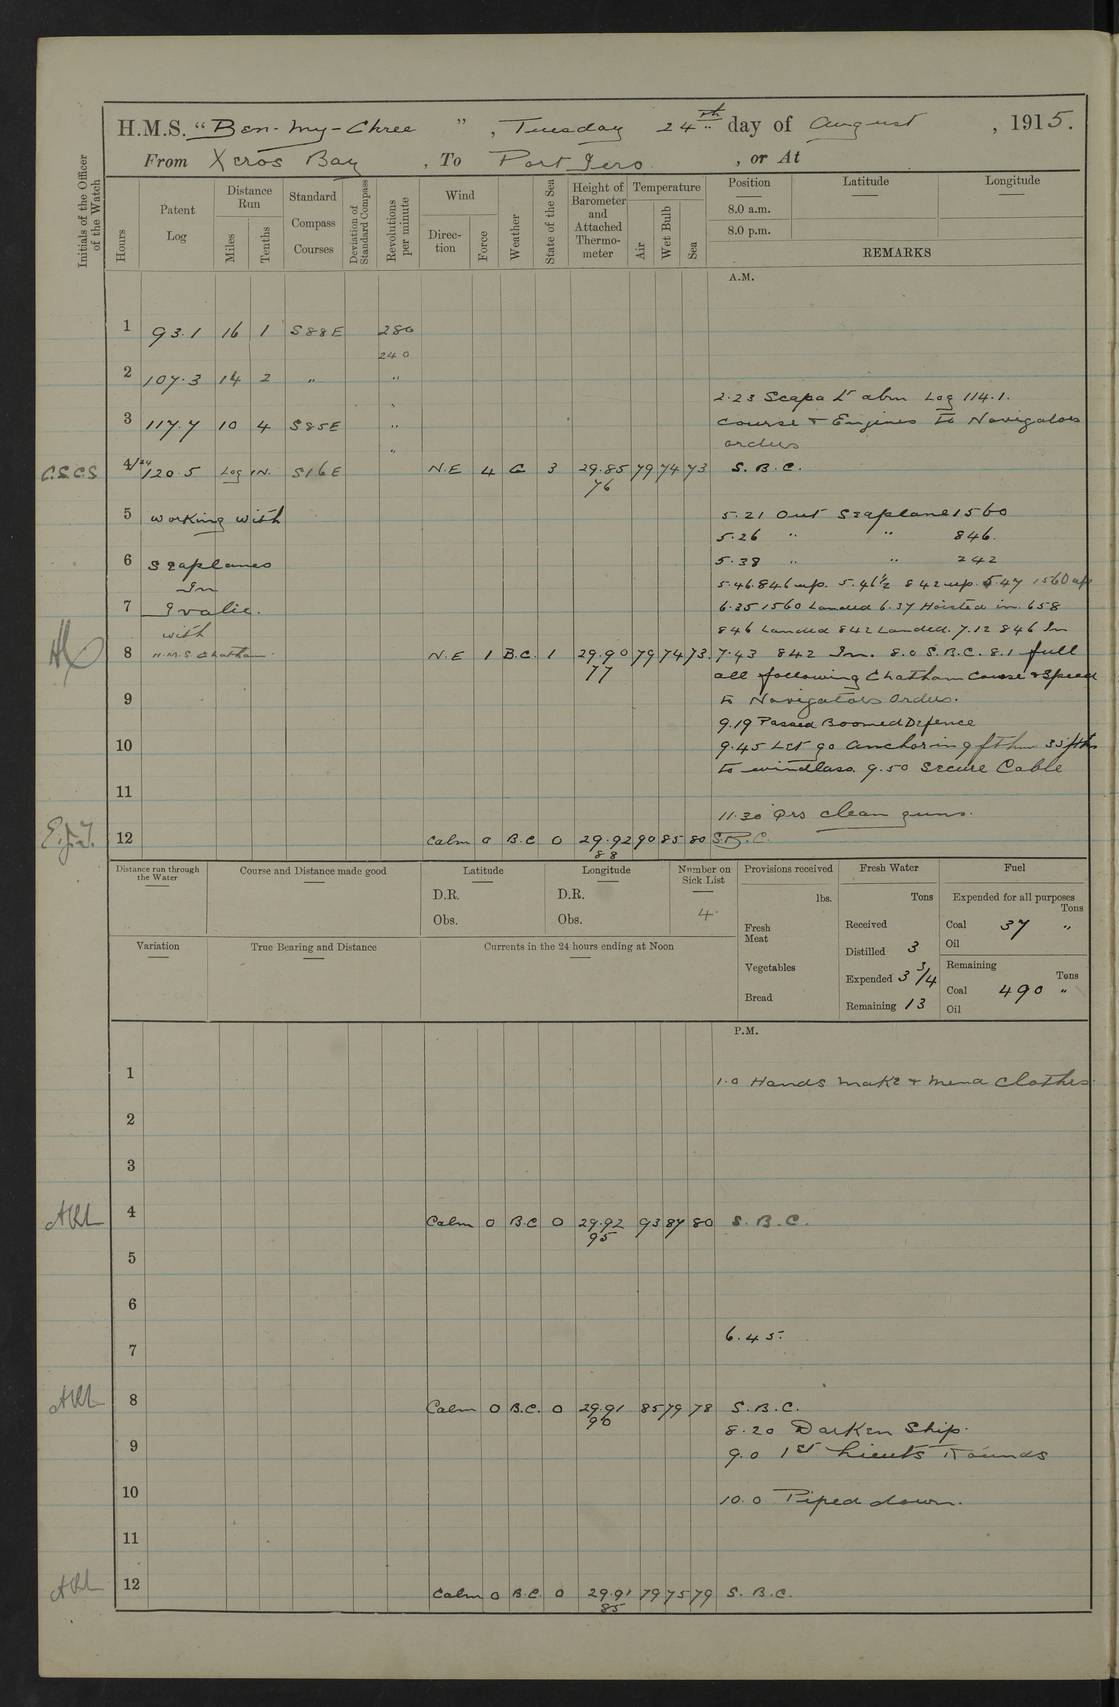 H.M.S. "Ben-my-Chree", Tuesday 24th day of August, 1915.
From Xeros Bay, To Port Iero, or At
Initials of the Officer of the Watch
Hours
Patent Log
Distance Run
Miles
Tenths
Standard Compass Courses
Deviation of Standard Compass
Revolutions per minute
Wind
Direction
Force
Weather
State of the Sea
Height of Barometer and Attached Thermometer
Temperature
Air
Wet Bulb
Sea
Position
Latitude
Longitude
8.0 a.m.
8.0 p.m.
REMARKS
A.M.
1 93.1 16 1 S88E 280
240
2 107.3 14 2 " "
2.23 Scapa Lt abm Log 114.1.
3 117.7 10 4 S85E "
course & Engines to Navigators
orders
C.S.C.S 4 120.5 Log IN. S16E N.E 4 C 3 29.85 79 74 73 S.B.C.
76
5 working with
5.21 Out Seaplane 1560
5.26 " " 846.
6 Seaplanes
5.38 " " 242
In
5.46.846 up. 5.46½ 842 up. 5.47 1560 up
7 Ivalie.
6.35 1560 Landed 6.37 Hoisted in. 658
with
846 Landed 842 Landed. 7.12 846 In
8 H.M.S Chatham N.E 1 B.C. 1 29.90 79 74 73. 7.43 842 In. 8.0 S.B.C. 8.1 full
77
all following Chatham Course & Speed
9 to Navigators Orders.
9.19 Passed Boomed Defence
10 9.45 Let go anchor in 9 fthm 35 fths
to windlass. 9.50 Secure Cable
11
11.30 Qrs clean guns.
E.J.T. 12 Calm 0 B.C 0 29.92 90 85 80 S.B.C.
88
Distance run through the Water
Course and Distance made good
Latitude
D.R.
Obs.
Longitude
D.R.
Obs.
Number on Sick List
4
Provisions received
lbs.
Fresh Meat
Vegetables
Bread
Fresh Water
Tons
Received
Distilled 3
Expended 3 3/4
Remaining 13
Fuel
Expended for all purposes
Tons
Coal 37 "
Oil
Remaining
Tons
Coal 490 "
Oil
Variation
True Bearing and Distance
Currents in the 24 hours ending at Noon
P.M.
1 1.0 Hands make & mend clothes
2
3
4 Calm 0 B.C 0 29.92 93 87 80 S.B.C.
95
5
6
6.45.
7
8 Calm 0 B.C. 0 29.91 85 79 78 S.B.C.
90
8.20 Darken Ship.
9 9.0 1st Lieuts Rounds
10 10.0 Piped down.
11
12 Calm 0 B.C. 0 29.91 79 75 79 S.B.C.
85